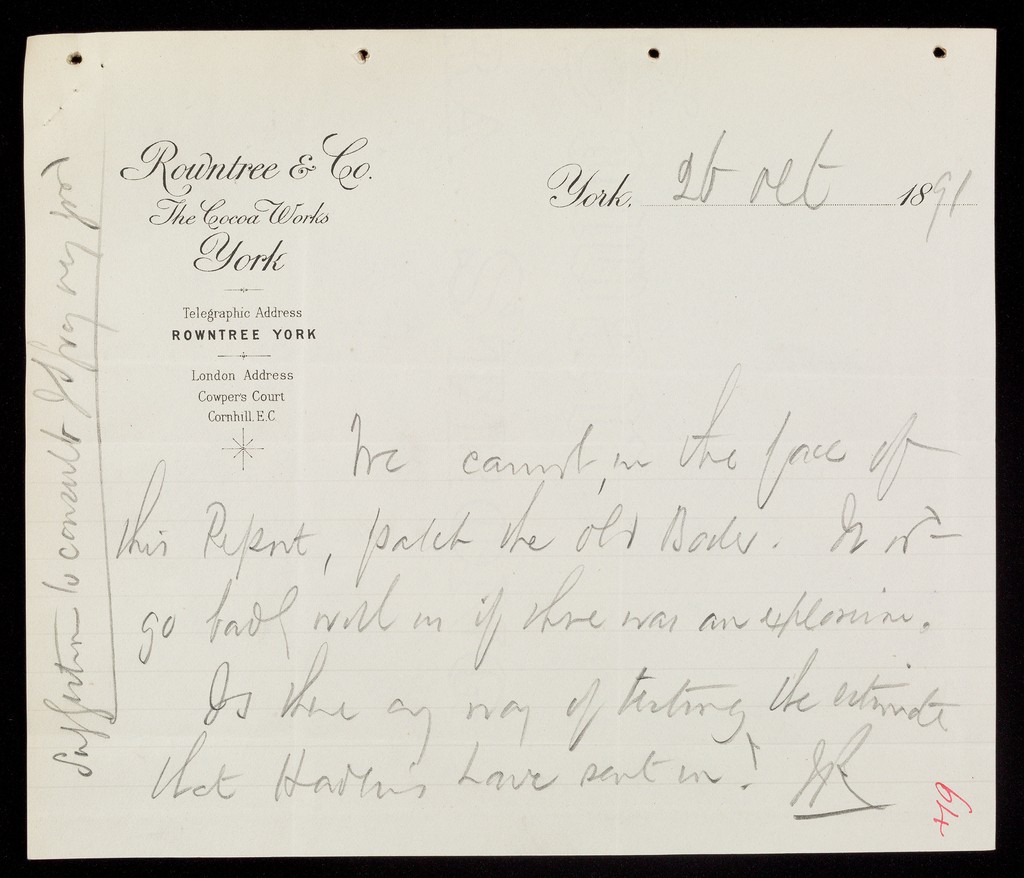 Rowntree & Co.
The Cocoa Works
York
Telegraphic Address
ROWNTREE YORK
London Address
Cowper's Court
Cornhill. E.C.
York, 26 Oct 1891
We cannot, in the face of
this Report, patch the old Boiler. It wd
go badly with us if there was an explosion.
Is there any way of testing the estimate
that have sent in? JR
to consult very good
64